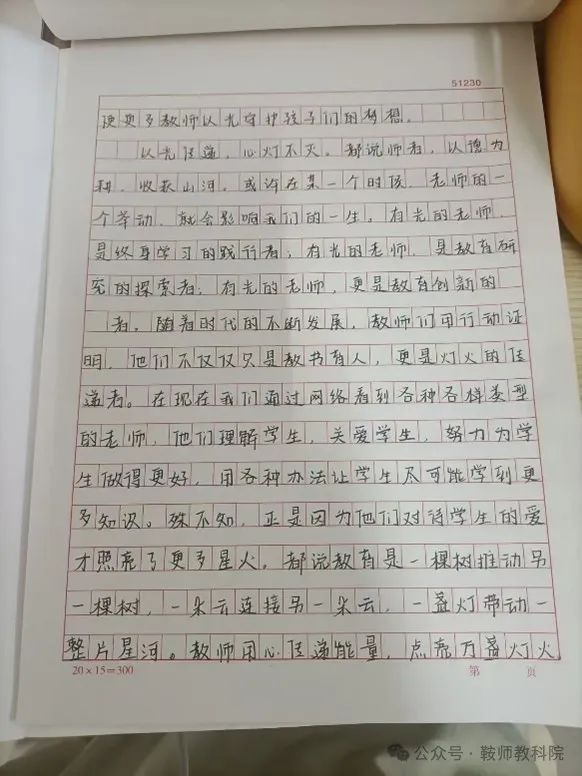 51230
使更多教师以光守护孩子们的梦想。
以光传递，心灯不灭。都说师者，以德为
耕，收获山河。或许在某一个时候，老师的一
个举动，就会影响我们的一生，有光的老师，
是终身学习的践行者；有光的老师，是教育研
究的探索者；有光的老师，更是教育创新的
者，随着时代的不断发展，教师们用行动证
明，他们不仅仅只是教书育人，更是灯火的传
递者。在现在我们通过网络看到各种各样类型
的老师，他们理解学生，关爱学生，努力为学
生做得更好，用各种办法让学生尽可能学到更
多知识。殊不知，正是因为他们对待学生的爱
才照亮了更多星火，都说教育是一棵树推动另
一棵树，一朵云连接另一朵云，一盏灯带动一
整片星河。教师用心传递能量，点亮万盏灯火
20×15=300 第 页
公众号·鞍师教科院